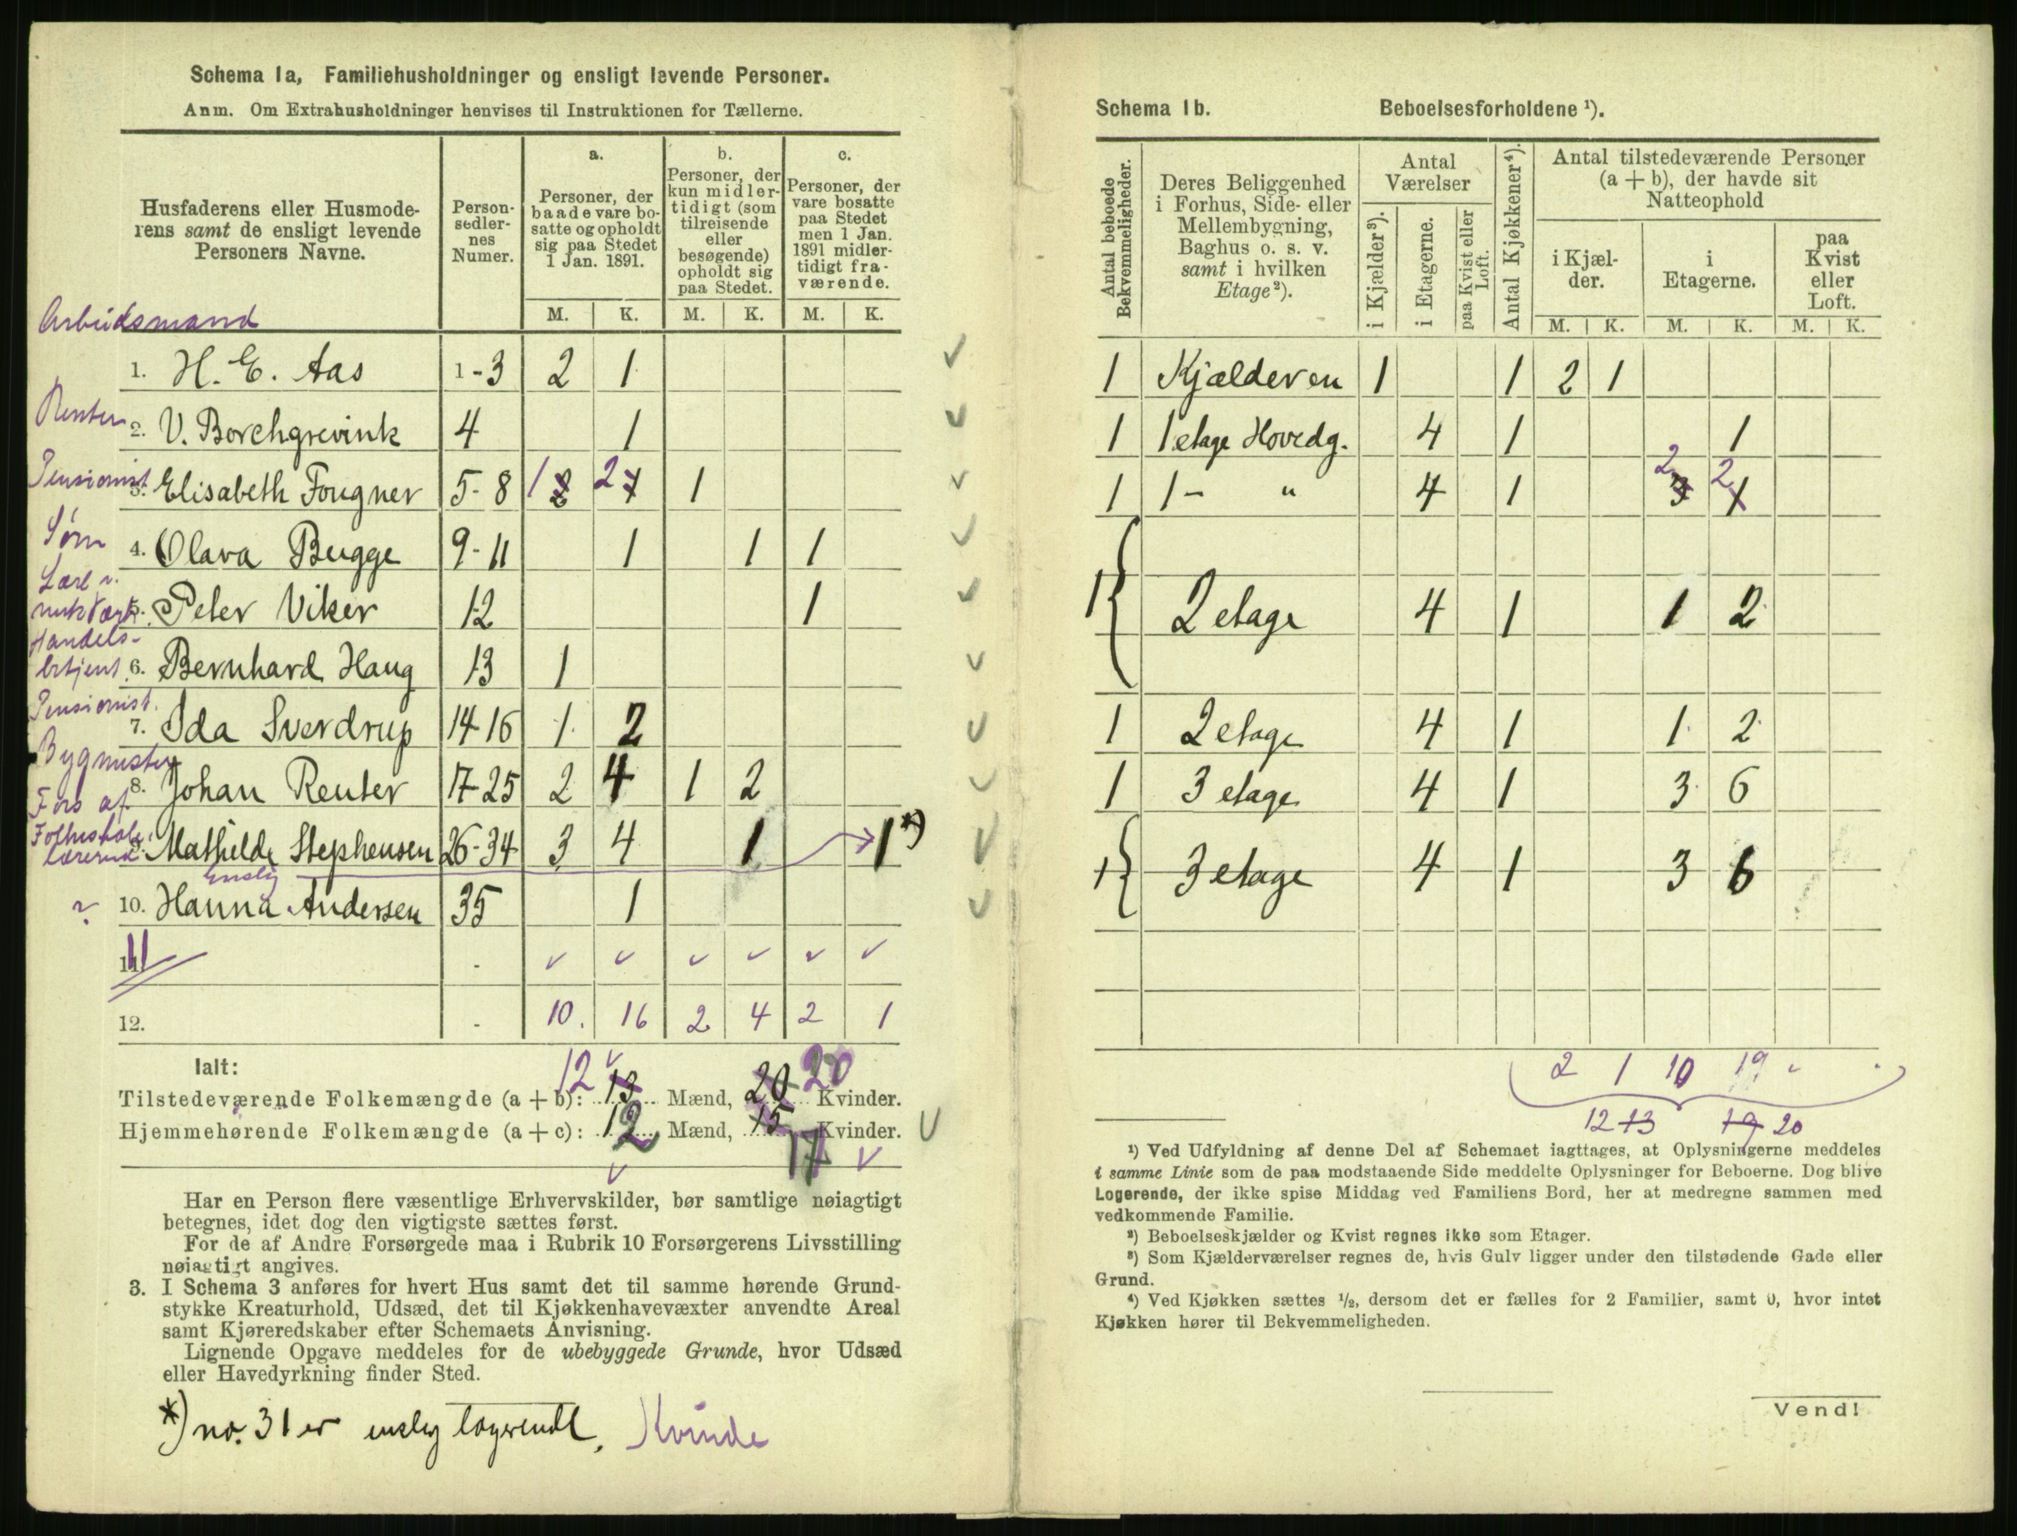 Schema 1a, Familiehusholdninger og ensligt levende Personer.
Anm. Om Extrahusholdninger henvises til Instruktionen for Tællerne.
Husfaderens eller Husmoderens samt de ensligt levende Personers Navne.
Personsedlernes Numer.
a.
Personer, der baade vare bosatte og opholdt sig paa Stedet 1 Jan. 1891.
b.
Personer, der kun midlertidigt (som tilreisende eller besøgende) opholdt sig paa Stedet.
c.
Personer, der vare bosatte paa Stedet men 1 Jan. 1891 midlertidigt fraværende.
M. K. M. K. M. K.
Arbeidsmand
1. H. E. Aas 1-3 2 1
2. V. Borchgrevink 4 1
Pensionist
3. Elisabeth Fougner 5-8 1 2 2 1 1
4. Olava Bugge 9-11 1 1 1
5. Peter Viker 12 1
Handels-
betjent
6. Bernhard Haug 13 1
Pensionist.
7. Ida Sverdrup 14-16 1 2
Bygmester
8. Johan Reuter 17-25 2 4 1 2
Fors af
9. Mathilde Stephensen 26-34 3 4 1 1 *)
Enslig
10. Hanna Andersen 35 1
11. 11 - ✓ ✓ ✓ ✓ ✓ ✓
12. - 10. 16 2 4 2 1
Ialt:
Tilstedeværende Folkemængde (a + b): 12 13 Mænd, 20 20 Kvinder.
Hjemmehørende Folkemængde (a + c): 12 Mænd, 15 17 Kvinder.
Har en Person flere væsentlige Erhvervskilder, bør samtlige nøiagtigt
betegnes, idet dog den vigtigste sættes først.
For de af Andre Forsørgede maa i Rubrik 10 Forsørgerens Livsstilling
nøiagtigt angives.
3. I Schema 3 anføres for hvert Hus samt det til samme hørende Grund-
stykke Kreaturhold, Udsæd, det til Kjøkkenhavevæxter anvendte Areal
samt Kjøreredskaber efter Schemaets Anvisning.
Lignende Opgave meddeles for de ubebyggede Grunde, hvor Udsæd
eller Havedyrkning finder Sted.
*) no. 31 er enslig logerende, Kvinde
Schema 1b. Beboelsesforholdene ¹).
Antal beboede Bekvemmeligheder.
Deres Beliggenhed i Forhus, Side- eller Mellembygning, Baghus o. s. v. samt i hvilken Etage ²).
Antal Værelser
i Kjælder ³).
i Etagerne.
paa Kvist eller Loft.
Antal Kjøkkener ⁴).
Antal tilstedeværende Personer (a + b), der havde sit Natteophold
i Kjælder.
i Etagerne.
paa Kvist eller Loft.
M. K. M. K. M. K.
1 Kjælderen 1 1 2 1
1 1 etage Hovedg. 4 1 1
1 1 - " 4 1 2 3 2 1
1 2 etage 4 1 1 2
1 2 etage 4 1 1 2
1 3 etage 4 1 3 6
1 3 etage 4 1 3 6
2 1 10 19
12 13 19 20
¹) Ved Udfyldning af denne Del af Schemaet iagttages, at Oplysningerne meddeles
i samme Linie som de paa modstaaende Side meddelte Oplysninger for Beboerne. Dog blive
Logerende, der ikke spise Middag ved Familiens Bord, her at medregne sammen med
vedkommende Familie.
²) Beboelseskjælder og Kvist regnes ikke som Etager.
³) Som Kjælderværelser regnes de, hvis Gulv ligger under den tilstødende Gade eller
Grund.
⁴) Ved Kjøkken sættes ½, dersom det er fælles for 2 Familier, samt 0, hvor intet
Kjøkken hører til Bekvemmeligheden.
Vend!